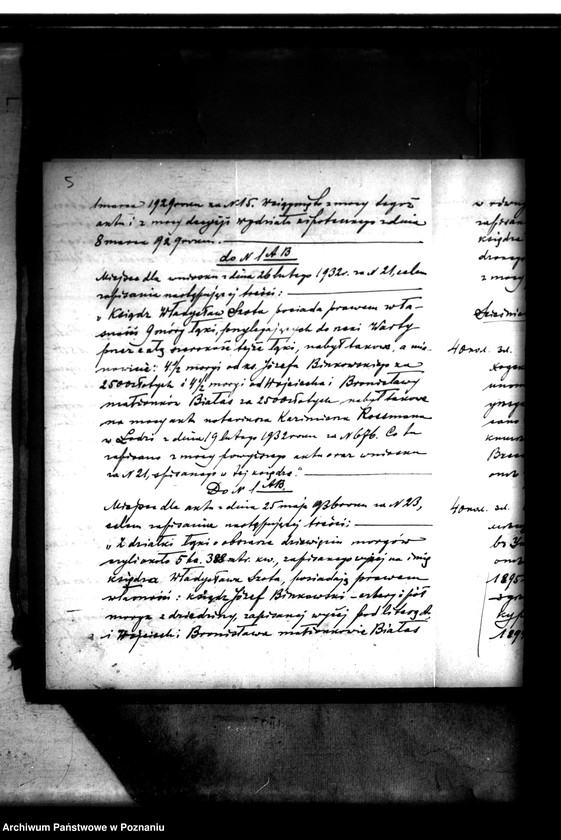 5
1 marca 1929 roku za N 15. Wciągnięto z mocy tegoż
aktu i z mocy decyzji wydziału hipotecznego z dnia
8 marca 1929 roku.
do N 1 AB
Miejsce dla wniosku z dnia 26 lutego 1932 r. za N 21, celem
zapisania następującej treści:
"Ksiądz Władysław Szota posiada prawem wła-
sności 9 morg łąki, przylegających do rzeki Warty
przez całą szerokość tejże łąki, nabył takowe, a mia-
nowicie: 4½ morgi od ks. Józefa Binkowskiego za
2500 złotych i 4½ morgi od Wojciecha i Bronisławy
małżonków Białas za 2500 złotych nabył takowe
na mocy aktu notariusza Kazimierza Rossmana
w Łodzi z dnia 19 lutego 1932 roku za N 676. Co tu
zapisano z mocy powyższego aktu oraz wniosku
za N 21, spisanego w tej księdze."
Do N 1 AB
Miejsce dla aktu z dnia 25 maja 1936 roku za N 23,
celem zapisania następującej treści:
"Z działki łąki o obszarze dziewięciu morgów
czyli około 5 ha. 388 mtr. kw., zapisanego wyżej na imię
księdza Władysława Szota, posiadają prawem
własności: ksiądz Józef Binkowski - cztery i pół
morga z dziedziny, zapisanej wyżej pod literą
i Wojciech i Bronisława małżonkowie Białas